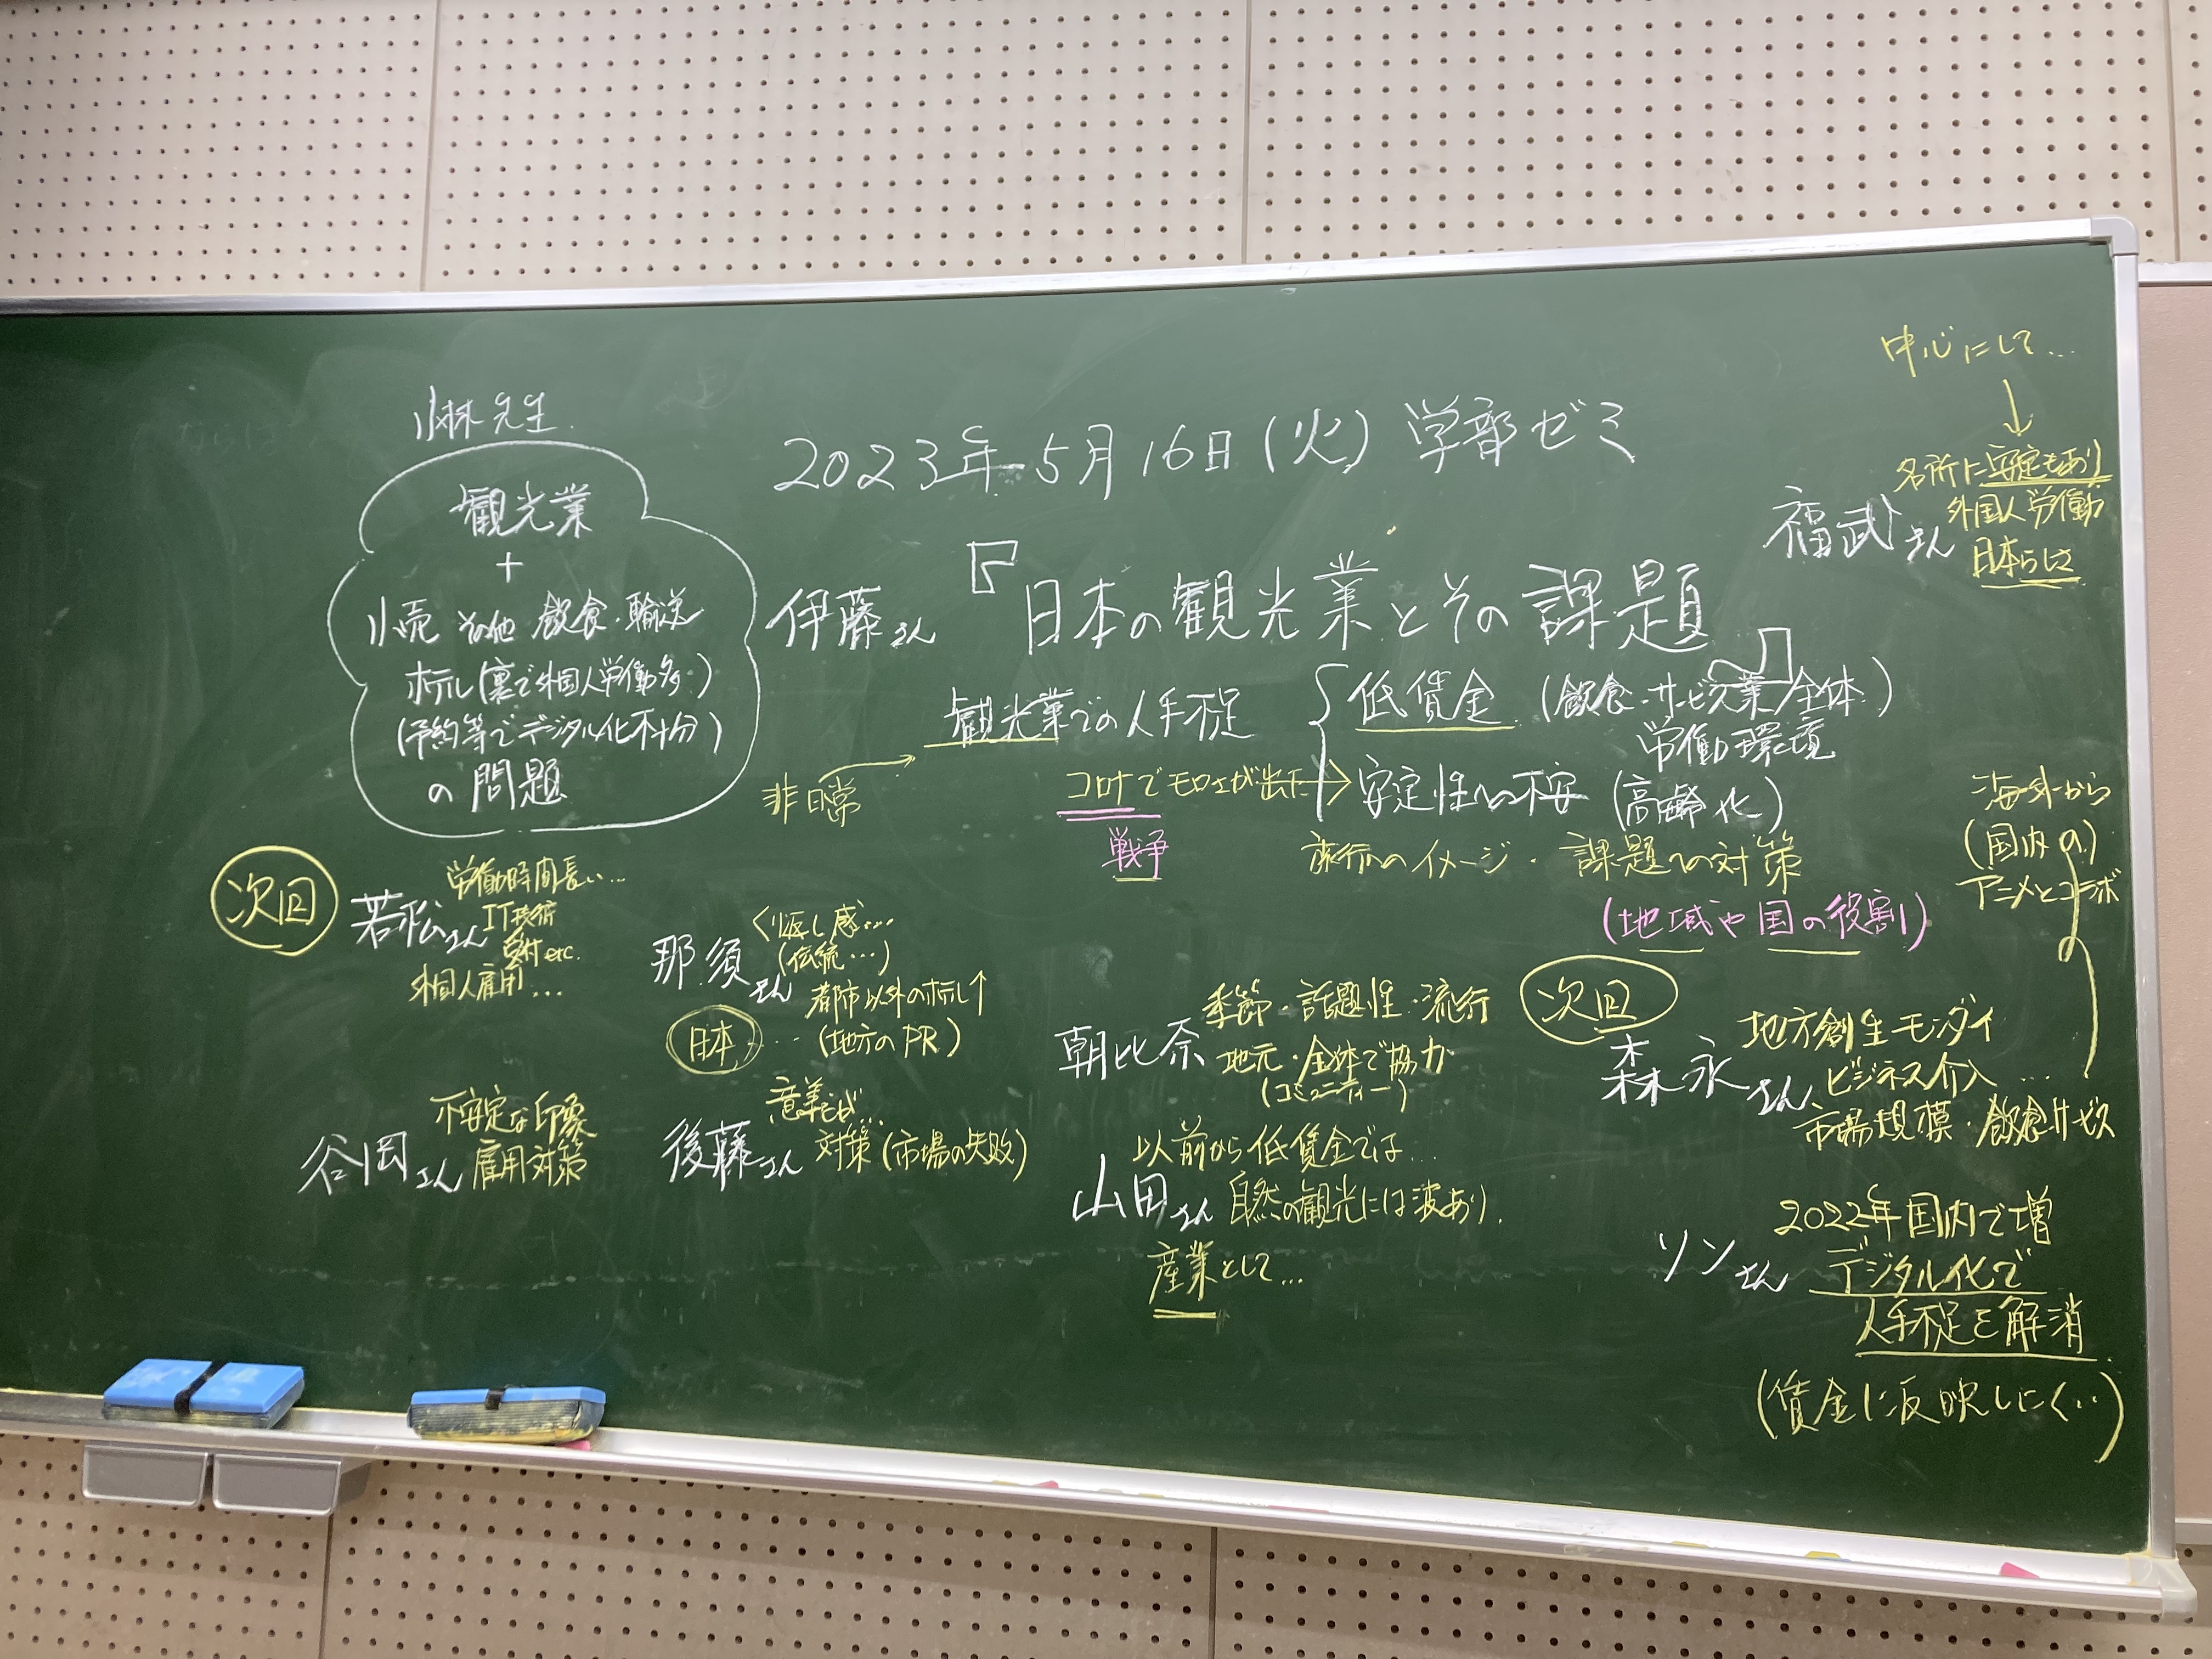 小林先生
観光業
+
小売 その他 飲食・輸送
ホテル(裏で外国人労働多)
(予約等でデジタル化不十分)
の問題
2023年5月16日(火)学部ゼミ
伊藤さん
『日本の観光業とその課題』
観光業での人手不足
低賃金 (飲食・サービス業/全体)
労働環境
非日常
コロナでモロさが出た→安定性への不安(高齢化)
戦争
旅行へのイメージ・課題への対策
(地域や国の役割)
中心にして…
↓
福武さん
名所に安定もあり
外国人労働
日本らしさ
海外から
(国内の)
アニメとコラボ
次回
若松さん
労働時間長い…
IT技術
受付etc.
外国人雇用…
那須さん
くり返し感…
(伝統…)
都市以外のホテル↑
日本…(地方のPR)
朝比奈
季節・話題性・流行
地元・全体で協力
(コミュニティー)
次回
森永さん
地方創生モンダイ
ビジネス介入…
市場規模・飲食サービス
谷岡さん
不安定な印象
雇用対策
後藤さん
対策(市場の失敗)
山田さん
以前から低賃金では…
自然の観光には波あり.
産業として…
ソンさん
2022年国内で増
デジタル化で
人手不足を解消
(賃金に反映しにく‥)